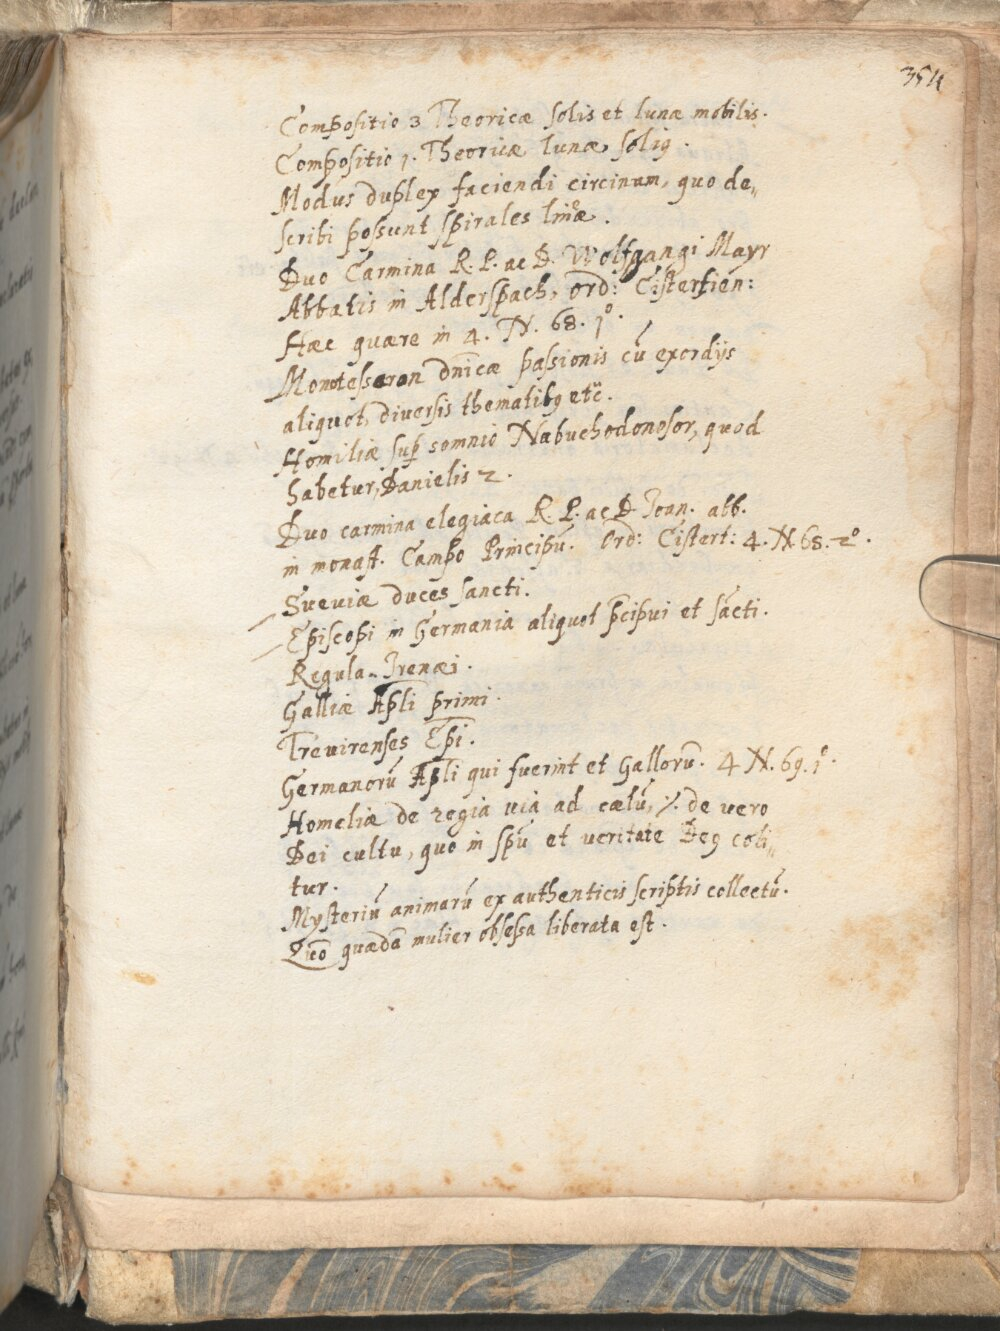 354
Compositio 3 Theoricæ solis et lunæ mobilis.
Compositio 1. Theoricæ lunæ solius.
Modus duplex faciendi circinum, quo de„
scribi possunt spirales lineæ.
Duo Carmina R. P. ac D. Wolfgangi Mayr
Abbatis in Alderspach, ord: Cistertien:
Hæc quære in 4. N. 68. 1º.
Monotessaron dn̄icæ passionis cū exordijs
aliquot, diversis thematibꝰ etc̄.
Homiliæ sup̄ somnio Nabuchodonosor, quod
habetur, Danielis 2.
Duo carmina elegiaca R. P. ac D. Joan. abb.
in monast. Campo Principū. Ord: Cistert: 4. N. 68. 2º.
Sueviæ duces sancti.
Episcopi in Germania aliquot p̄cipui et sācti.
Regula Irenæi.
Galliæ Ap̄li primi.
Trevirenses Ep̄i.
Germanorū Ap̄li qui fuerint et Gallorū. 4 N. 69. 1º.
Homeliæ de regia via ad cælū, de vero
Dei cultu, quo in sp̄u et veritate Deꝰ coli„
tur.
Mysteriū animarū ex authenticis scriptis collectū.
Quō quædā mulier obsessa liberata est.